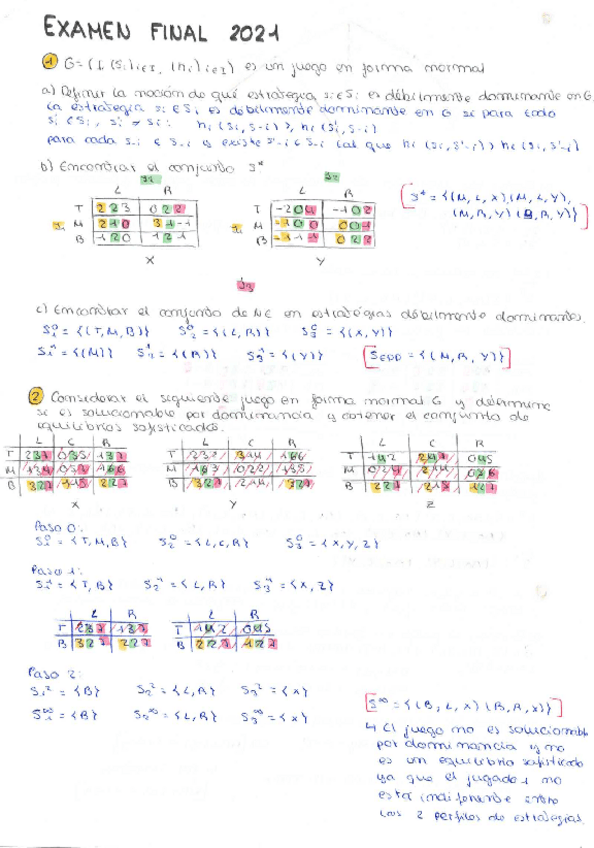 EXAMEN FINAL 2021
1 G=(I, (Si)i∈I, (hi)i∈I) es un juego en forma normal
a) Definir la noción de qué estrategia si∈Si es débilmente dominante en G.
La estrategia si∈Si es débilmente dominante en G si para todo
si'∈Si, si'≠si: hi(si,s-i) ≥ hi(si',s-i)
para cada s-i ∈ S-i y existe s'-i∈S-i tal que hi(si,s'-i) > hi(si',s'-i)
b) Encontrar el conjunto S*
J2 J2
L R L R
T 2 2 3 0 2 2 T -2 0 4 -1 0 2
J1 M 2 1 0 3 1 -1 J1 M -1 0 0 0 0 1
B 1 2 0 1 2 1 B -1 -1 1 0 2 2
X Y
S* = {(M, L, X), (M, L, Y),
(M, R, Y) (B, R, Y)}
J3
c) Encontrar el conjunto de NE en estrategias débilmente dominantes.
S1⁰ = {(T,M,B)} S2⁰ = {(L,R)} S3⁰ = {(X,Y)}
S1¹ = {(M)} S2¹ = {(R)} S3¹ = {(Y)} SEDD = {(M, R, Y)}
2 Considerar el siguiente juego en forma normal G y determine
si es solucionable por dominancia y obtener el conjunto de
equilibrios sofisticados.
L C R L C R L C R
T 2 3 7 0 3 5 1 3 7 T 2 3 7 3 4 4 1 6 6 T 1 4 2 2 4 7 0 4 5
M 1 3 4 0 5 7 4 6 6 M 1 6 3 0 2 2 1 3 5 M 0 2 4 2 4 4
B 3 2 7 2 2 7 B 3 2 7 2 4 4 3 2 7 B 2 2 7 1 2 7
X Y Z
Paso 0:
S1⁰ = {T,M,B} S2⁰ = {L,C,R} S3⁰ = {X,Y,Z}
Paso 1:
S1¹ = {T,B} S2¹ = {L,R} S3¹ = {X,Z}
L R L R
T 2 3 7 1 3 7 T 1 4 2 0 4 5
B 3 2 7 2 2 7 B 2 2 7 1 2 7
Paso 2:
S1² = {B} S2² = {L,R} S3² = {X}
S1^∞ = {B} S2^∞ = {L,R} S3^∞ = {X}
S^∞ = {(B, L, X) (B, R, X)}
↳ El juego no es solucionable
por dominancia y no
es un equilibrio sofisticado
ya que el jugador 1 no
está indiferente entre
los 2 perfiles de estrategias.